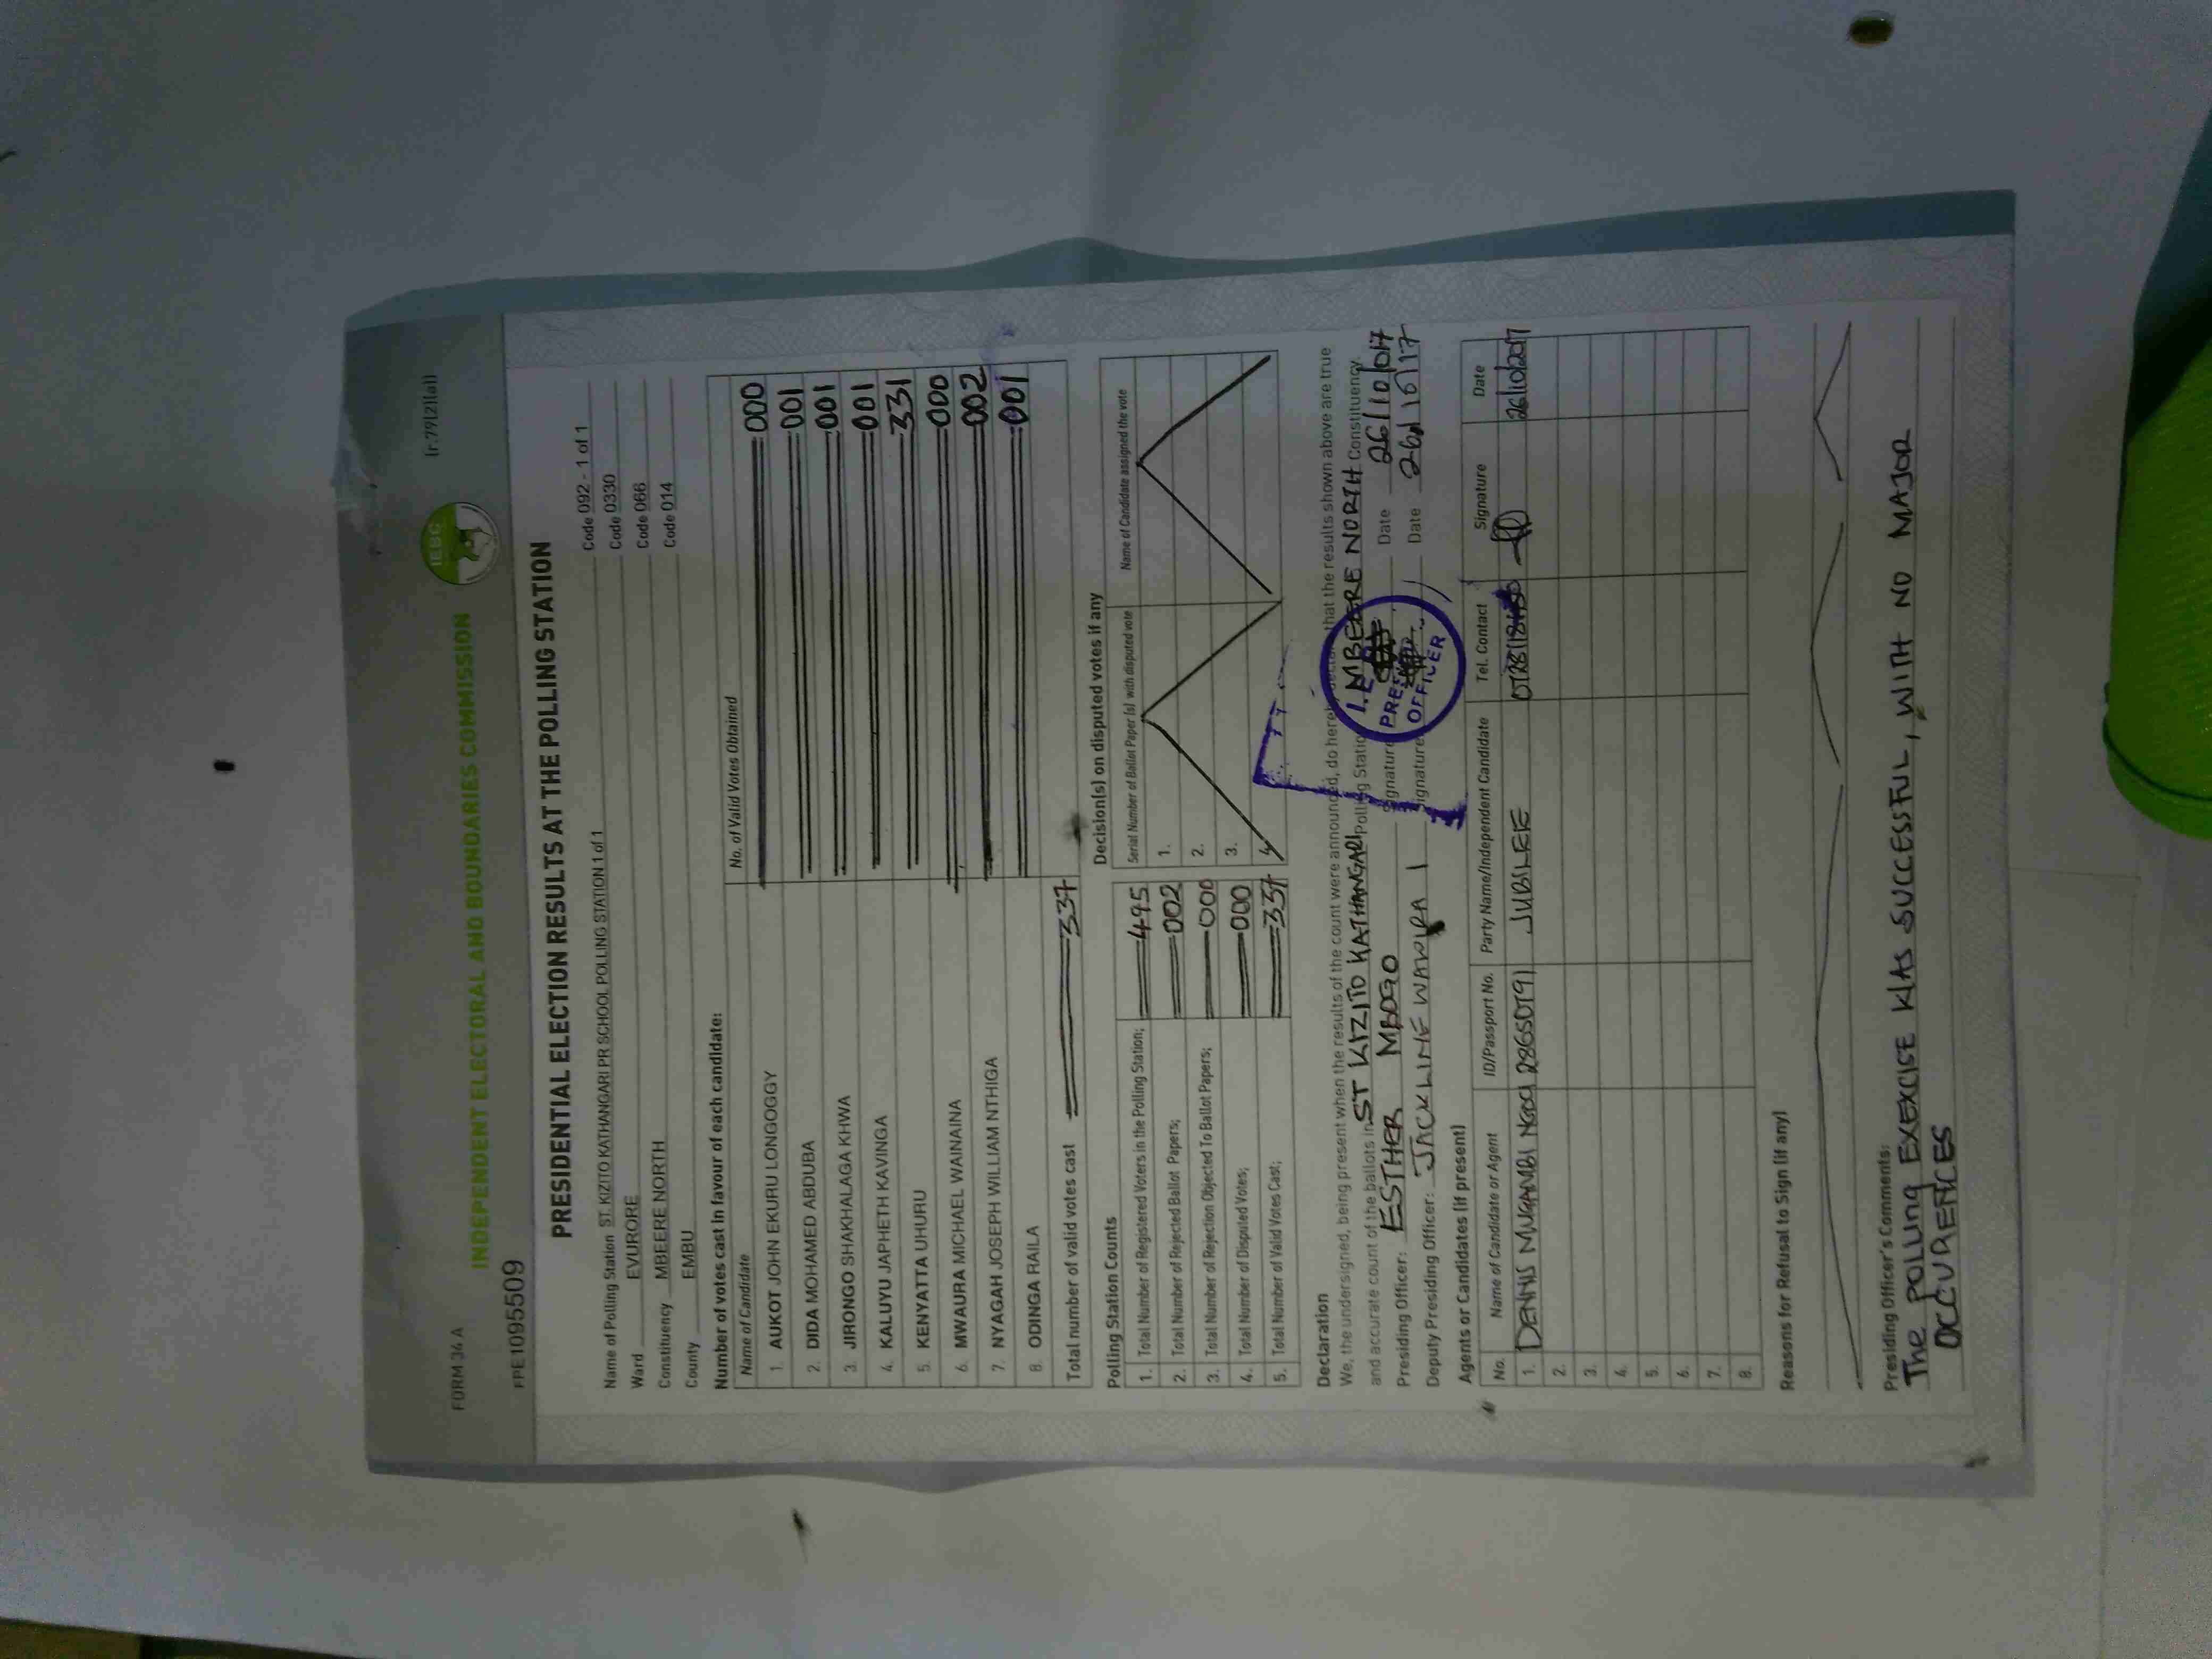 FORM 34 A
(r.79(2)(a))
INDEPENDENT ELECTORAL AND BOUNDARIES COMMISSION
IEBC
FPE1095509
PRESIDENTIAL ELECTION RESULTS AT THE POLLING STATION
Name of Polling Station ST. KIZITO KATHANGARI PR SCHOOL POLLING STATION 1 of 1 Code 092 - 1 of 1
Ward EVURORE Code 0330
Constituency MBEERE NORTH Code 066
County EMBU Code 014
Number of votes cast in favour of each candidate:
Name of Candidate No. of Valid Votes Obtained
1. AUKOT JOHN EKURU LONGOGGY 000
2. DIDA MOHAMED ABDUBA 001
3. JIRONGO SHAKHALAGA KHWA 001
4. KALUYU JAPHETH KAVINGA 001
5. KENYATTA UHURU 331
6. MWAURA MICHAEL WAINAINA 000
7. NYAGAH JOSEPH WILLIAM NTHIGA 002
8. ODINGA RAILA 001
Total number of valid votes cast 337
Polling Station Counts
1. Total Number of Registered Voters in the Polling Station; 495
2. Total Number of Rejected Ballot Papers; 002
3. Total Number of Rejection Objected To Ballot Papers; 000
4. Total Number of Disputed Votes; 000
5. Total Number of Valid Votes Cast; 337
Decision(s) on disputed votes if any
Serial Number of Ballot Paper (s) with disputed vote Name of Candidate assigned the vote
1.
2.
3.
4.
Declaration
We, the undersigned, being present when the results of the count were announced, do hereby declare that the results shown above are true
and accurate count of the ballots in ST KIZITO KATHANGARI Polling Station MBEERE NORTH Constituency.
Presiding Officer: ESTHER MBOGO Signature Date 26/10/017
Deputy Presiding Officer: JACKLINE WAWIRA Signature Date 26/10/17
PRESIDING OFFICER
Agents or Candidates (if present)
No. Name of Candidate or Agent ID/Passport No. Party Name/Independent Candidate Tel. Contact Signature Date
1. DENNIS 28650791 JUBILEE 26/10/2017
2.
3.
4.
5.
6.
7.
8.
Reasons for Refusal to Sign (if any)
Presiding Officer's Comments:
The POLLING EXEXCISE WAS SUCCESSFUL, WITH NO MAJOR
OCCURENCES